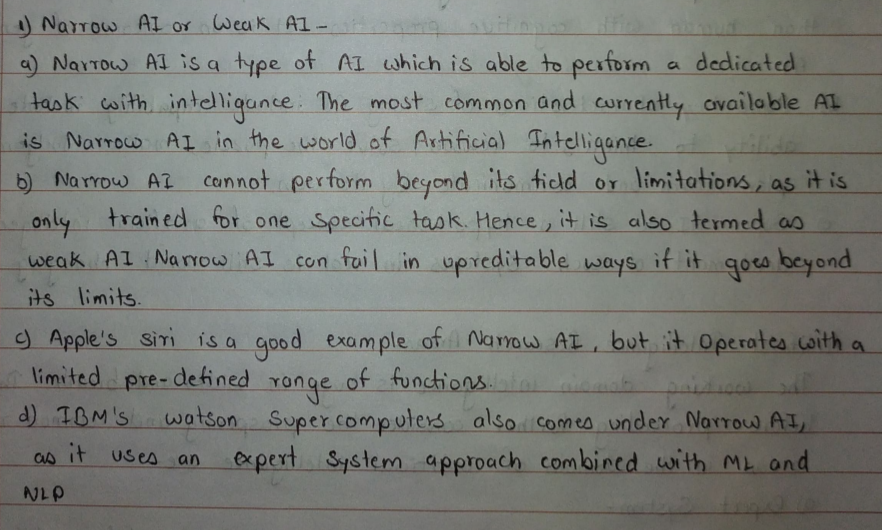 1) Narrow AI or Weak AI -
a) Narrow AI is a type of AI which is able to perform a dedicated
task with intelligance. The most common and currently available AI
is Narrow AI in the world of Artificial Intelligance.
b) Narrow AI cannot perform beyond its field or limitations, as it is
only trained for one specific task. Hence, it is also termed as
weak AI. Narrow AI can fail in upreditable ways if it goes beyond
its limits.
c) Apple's siri is a good example of Narrow AI, but it operates with a
limited pre-defined range of functions.
d) IBM's watson supercomputers also comes under Narrow AI,
as it uses an expert system approach combined with ML and
NLP